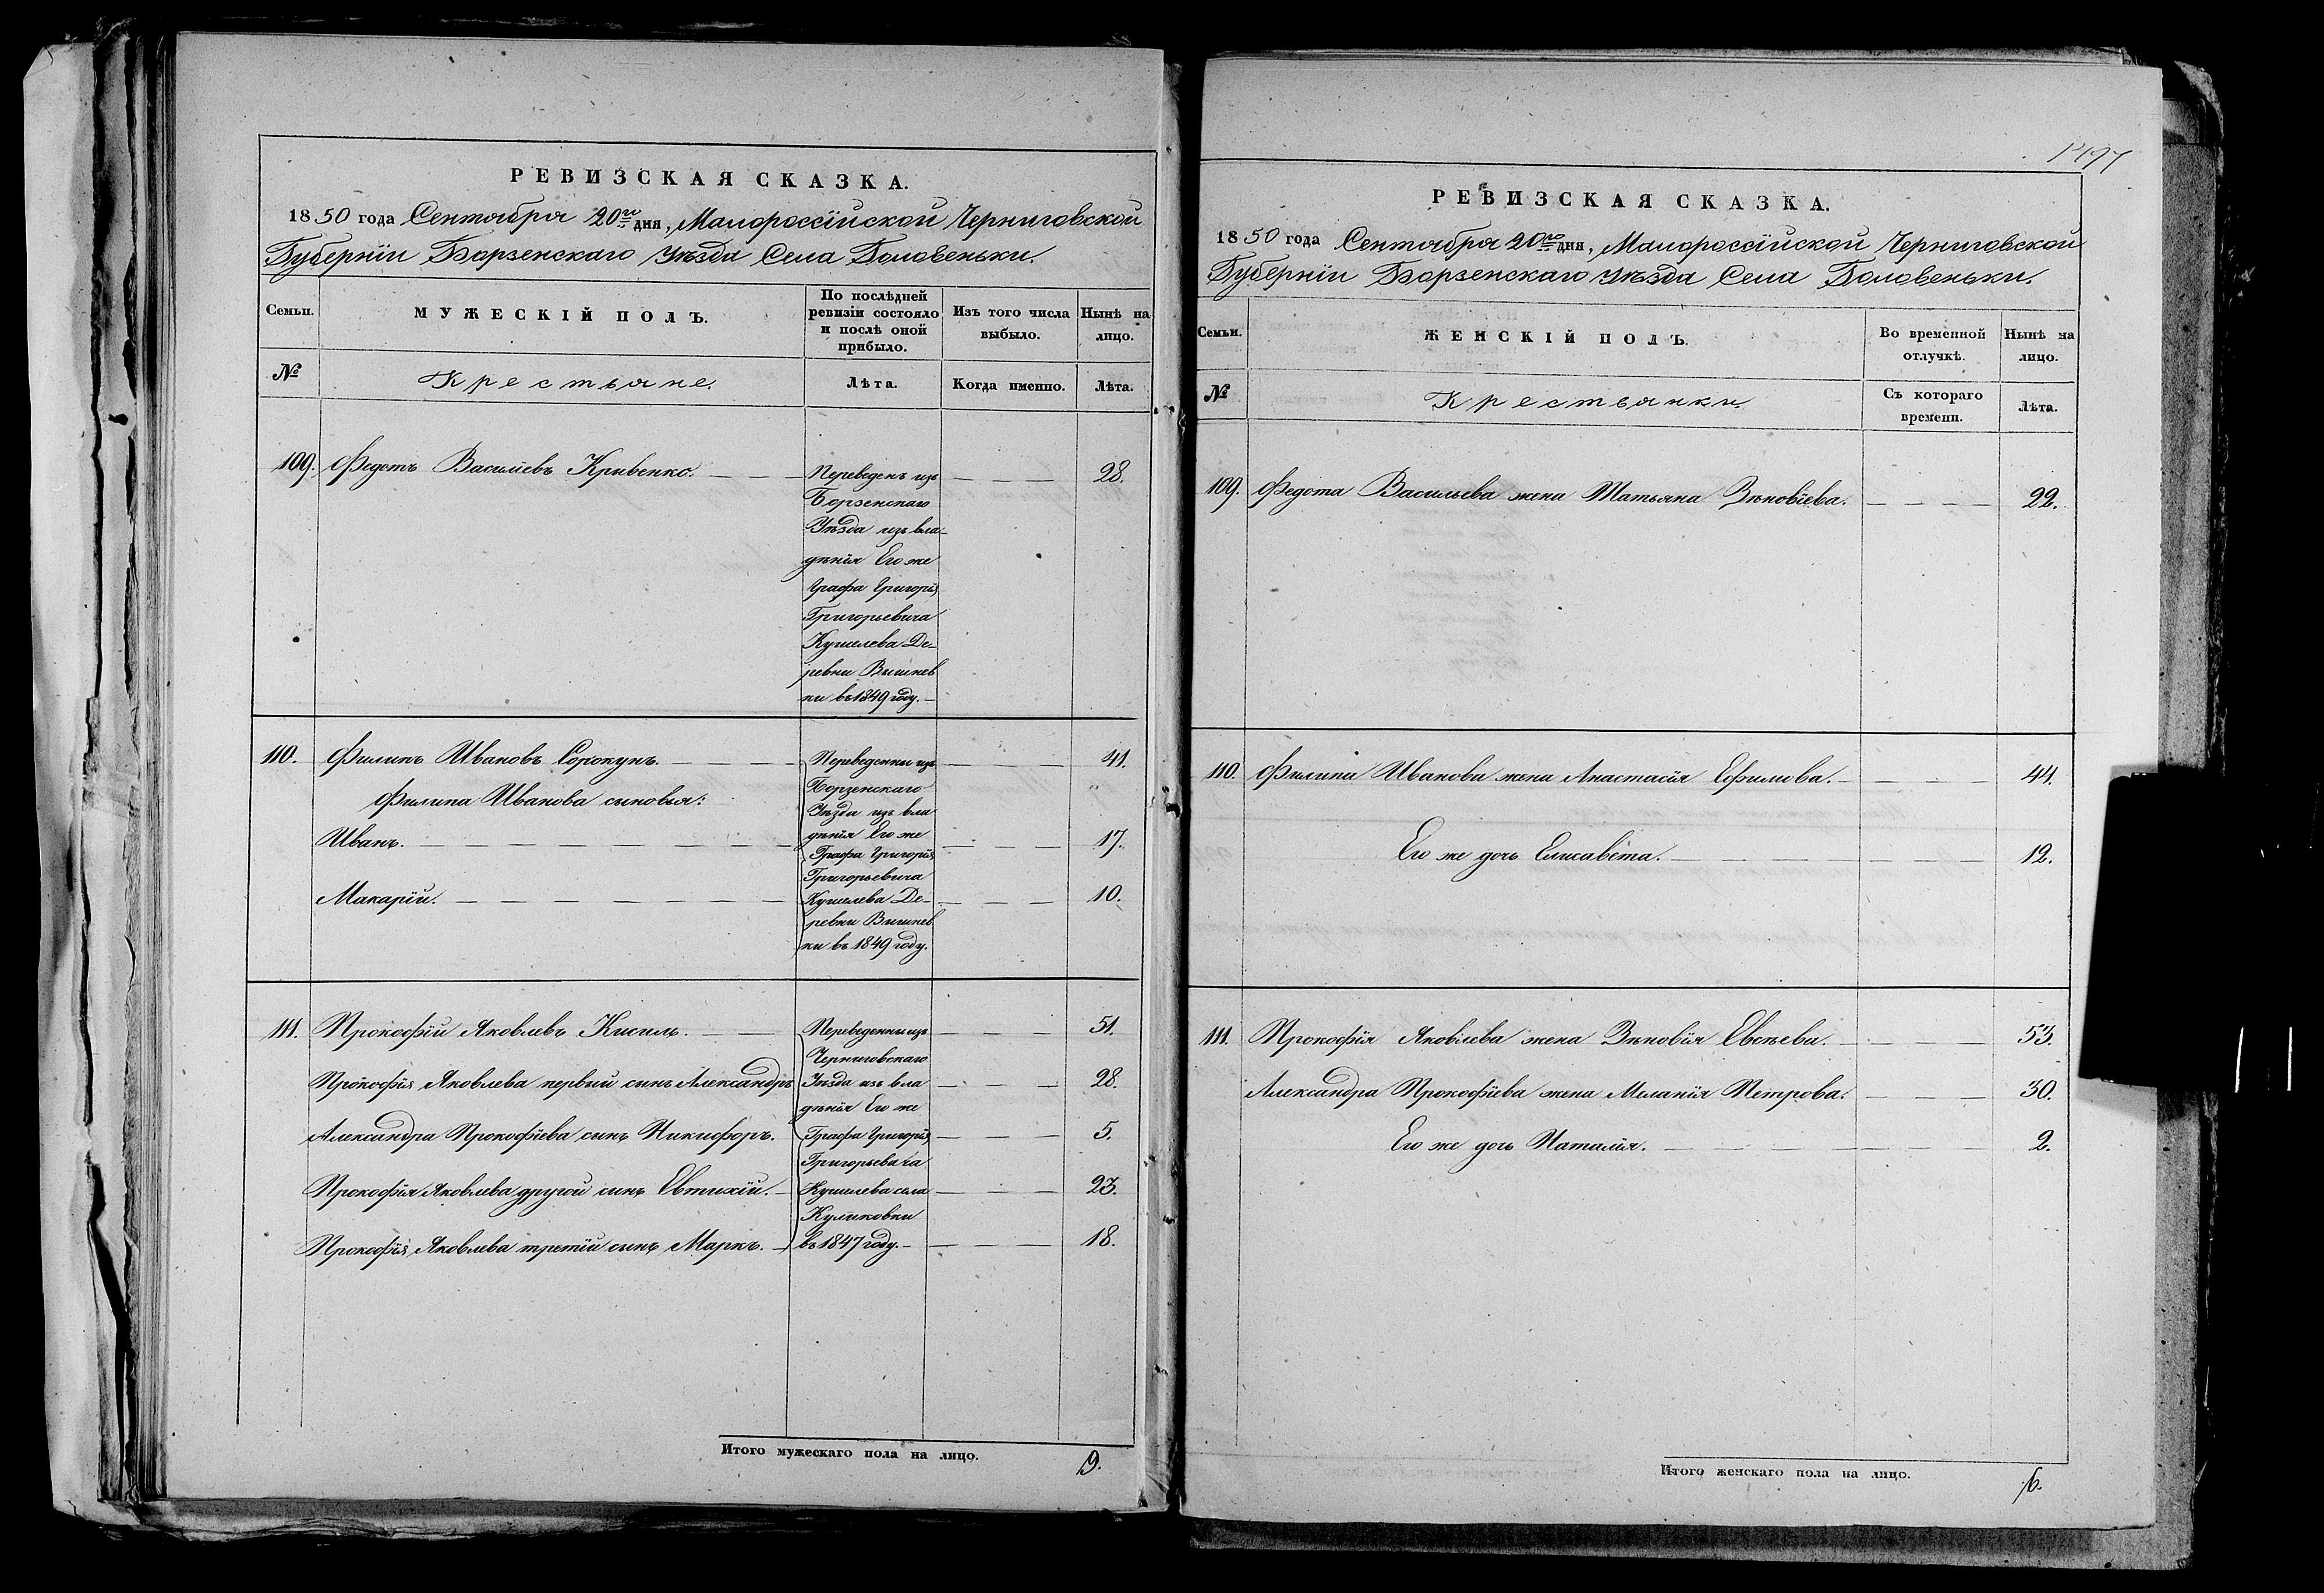 РЕВИЗСКАЯ СКАЗКА.
1850 года Сентября 20го дня, Малороссійской Черниговской
Губерніи Борзенскаго Уѣзда Села Головеньки.
Семьи.
МУЖЕСКІЙ ПОЛЪ.
По послѣдней ревизіи состояло и послѣ оной прибыло.
Изъ того числа выбыло.
Нынѣ на лицо.
№
Крестьяне.
Лѣта.
Когда именно.
Лѣта.
109. Федотъ Василіевъ Кривенко. 28.
Переведенъ изъ
Борзенскаго
Уѣзда изъ вла-
дѣнія Его же
Графа Григорія
Григорьевича
Кушелева Де-
ревни Вишнев
ки въ 1849 году.
110. Филипъ Ивановъ Сорокунъ. 41.
Филипа Иванова сыновья:
Иванъ. 17.
Макарій. 10.
Переведенны изъ
Борзенскаго
Уѣзда изъ вла
дѣнія Его же
Графа Григорія
Григорьевича
Кушелева Де-
ревни Вишнев
ки въ 1849 году.
111. Прокофій Яковлевъ Кисиль. 51.
Прокофія Яковлева первый сынъ Александръ 28.
Александра Прокофіева сынъ Никифоръ. 5.
Прокофія Яковлева другой сынъ Евтихій. 23.
Прокофія Яковлева третій сынъ Маркъ. 18.
Переведенны изъ
Черниговскаго
Уѣзда изъ вла
дѣнія Его же
Графа Григорія
Григорьевича
Кушелева села
Куликовки
въ 1847 году.
Итого мужескаго пола на лицо. 9.
РЕВИЗСКАЯ СКАЗКА.
1850 года Сентября 20го дня, Малороссійской Черниговской
Губерніи Борзенскаго Уѣзда Села Головеньки.
Семьи.
ЖЕНСКІЙ ПОЛЪ.
Во временной отлучкѣ.
Нынѣ на лицо.
№
Крестьянки.
Съ котораго времени.
Лѣта.
109. Федота Васильева жена Татьяна Зѣновіева. 22.
110. Филипа Иванова жена Анастасія Ефимова. 44.
Его же дочь Елисавета. 12.
111. Прокофія Яковлева жена Зѣновія Евсѣева. 53.
Александра Прокофіева жена Меланія Петрова. 30.
Его же дочь Наталія. 2.
Итого женскаго пола на лицо. 6.